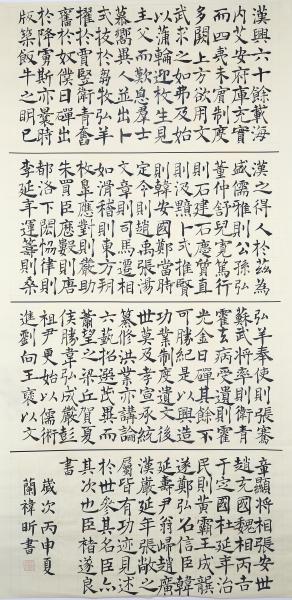 漢興六十餘載海
內艾安府庫充實
而四夷未賓制度
多闕上方欲用文
武求之如弗及始
以蒲輪迎枚生見
主父而歎息群士
慕嚮異人並出卜
式拔於芻牧弘羊
擢於賈豎衛青奮
奮於奴僕日磾出
於降虜斯亦曩時
版築飯牛之明已
漢之得人於茲為
盛儒雅則公孫弘
董仲舒兒寬篤行
則石建石慶質直
則汲黯卜式推賢
則韓安國鄭當時
定令則趙禹張湯
文章則司馬遷相
如滑稽則東方朔
枚皋應對則嚴助
朱買臣歷數則唐
都洛下閎協律則
李延年運籌則桑
弘羊奉使則張騫
蘇武將率則衛青
霍去病受遺則霍
光金日磾其餘不
可勝紀是以興造
功業制度遺文後
世莫及孝宣承統
纂修洪業亦講論
六藝招選茂異而
蕭望之梁丘賀夏
侯勝韋弘成嚴彭
祖尹更始以儒術
進劉向王褒以文
章顯將相張安世
趙充國魏相丙吉
于定國杜延年治
民則黃霸王成龔
遂鄭弘召信臣韓
延壽尹翁歸趙廣
漢嚴延年張敞之
屬皆有功迹見述
於世參其名臣亦
其次也臣褚遂良
書
歲次丙申夏
蘭禕昕書